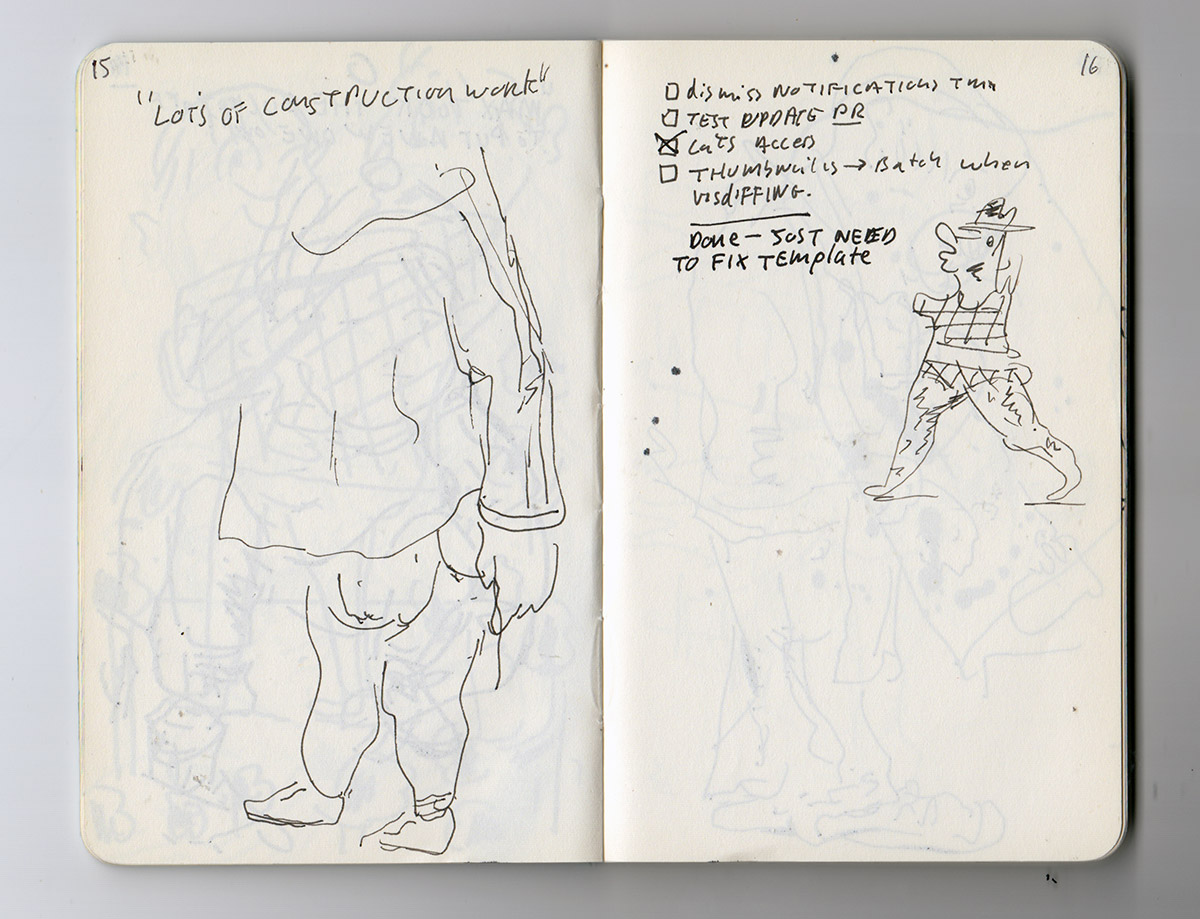 15
"LOTS OF CONSTRUCTION WORK"
16
dismiss NOTIFICATIONS
TEST UPDATE PR
CATS ACCESS
THUMBNAILS → Batch when
VISDIFFING.
Done — JUST NEED
TO FIX Template